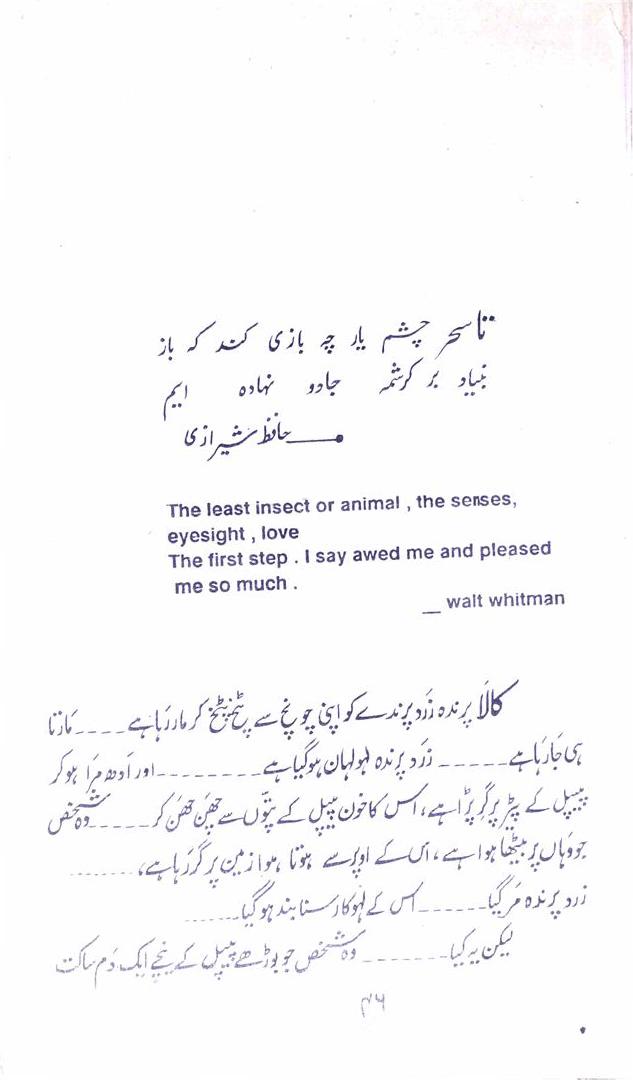 تا سحر چشم یار چہ بازی کند کہ باز
بنیاد بر کرشمہ جادو نہادہ ایم
حافظ شیرازی
The least insect or animal , the senses,
eyesight , love
The first step . I say awed me and pleased
me so much .
__ walt whitman
کالا پرندہ زرد پرندے کو اپنی چونچ سے پٹخ پٹخ کر مار رہا ہے ____ مارتا
ہی جا رہا ہے _____ زرد پرندہ لہولہان ہو گیا ہے ________ اور اَدھ مَرا ہو کر
پیپل کے پیڑ پر گر پڑا ہے، اس کا خون پیپل کے پتّوں سے چھَن چھَن کر _____ وہ شخص
جو وہاں پر بیٹھا ہوا ہے، اس کے اوپر سے ہوتا ہوا زمین پر گر رہا ہے، ........
زرد پرندہ مَر گیا ______ اس کے لہو کا رسنا بند ہو گیا ......
لیکن یہ کیا ________ وہ شخص جو بوڑھے پیپل کے نیچے ایک دَم ساکت
۴۶